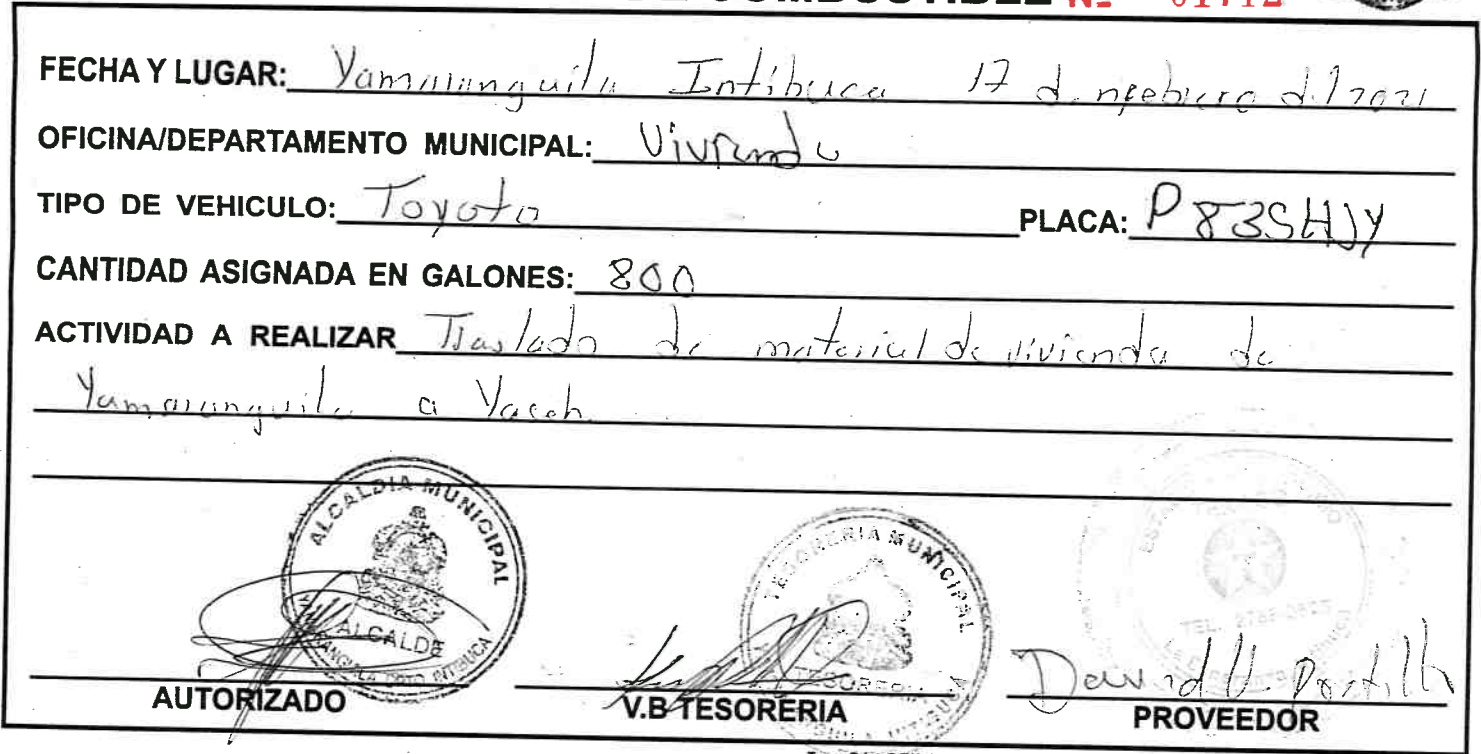 COMBUSTIBLE Nº 01712
FECHA Y LUGAR: Yamaranguila Intibuca 17 de febrero del 2021
OFICINA/DEPARTAMENTO MUNICIPAL: Vivienda
TIPO DE VEHICULO: Toyota PLACA: P 83SHJY
CANTIDAD ASIGNADA EN GALONES: 800
ACTIVIDAD A REALIZAR Traslado de material de vivienda de
Yamaranguila a
ALCALDIA MUNICIPAL
ALCALDE
YAMARANGUILA DPTO INTIBUCA
TESORERIA MUNICIPAL
TESORERIA
INTIBUCA
TEL.
David Portillo
AUTORIZADO
V.B TESORERIA
PROVEEDOR